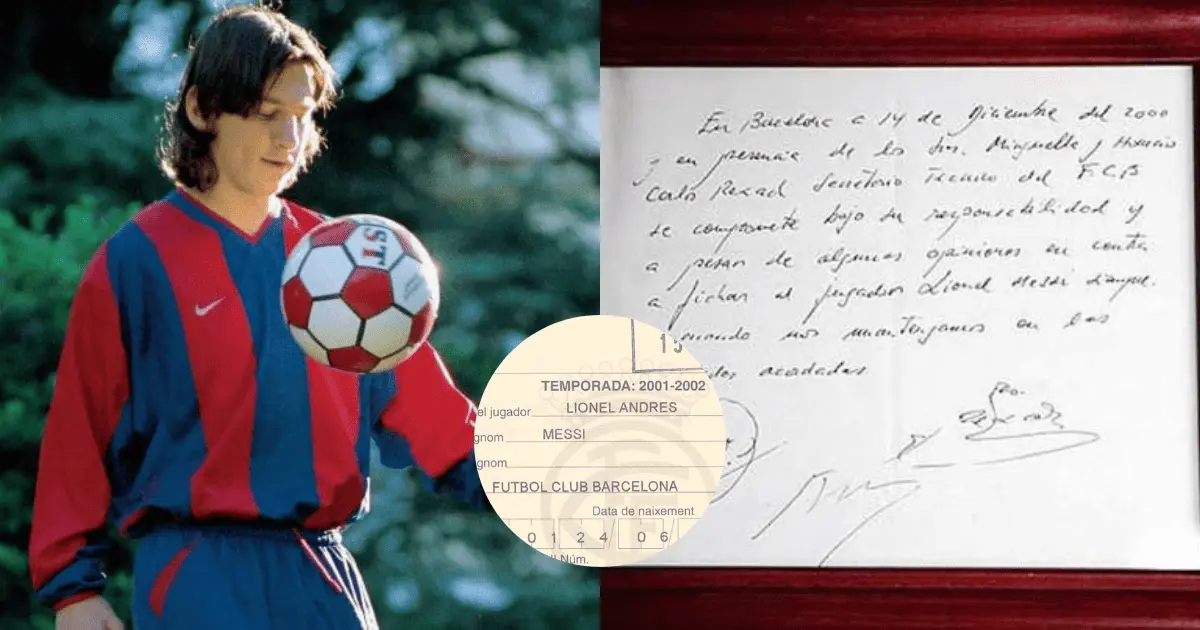 ST
En Barcelona a 14 de Diciembre del 2000
y en presencia de los Srs. Minguella y Horacio
Carlos Rexach Secretario Técnico del F.C.B
se compromete bajo su responsabilidad y
a pesar de algunas opiniones en contra
a fichar al jugador Lionel Messi siempre
y cuando nos mantengamos en las
acordadas
15
TEMPORADA: 2001-2002
el jugador LIONEL ANDRES
gnom MESSI
gnom
FUTBOL CLUB BARCELONA
Data de naixement
0 1 2 4 0 6
Núm.